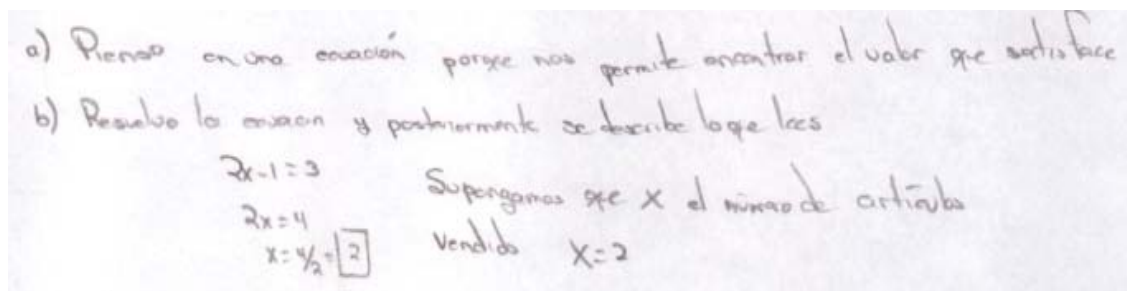 a) Pienso en una ecuación porque nos permite encontrar el valor que satisface
b) Resuelvo la ecuación y posteriormente se describe lo que lees
2x-1=3
2x=4
x=4/2=2
Supongamos que X el número de artículos
vendido X=2